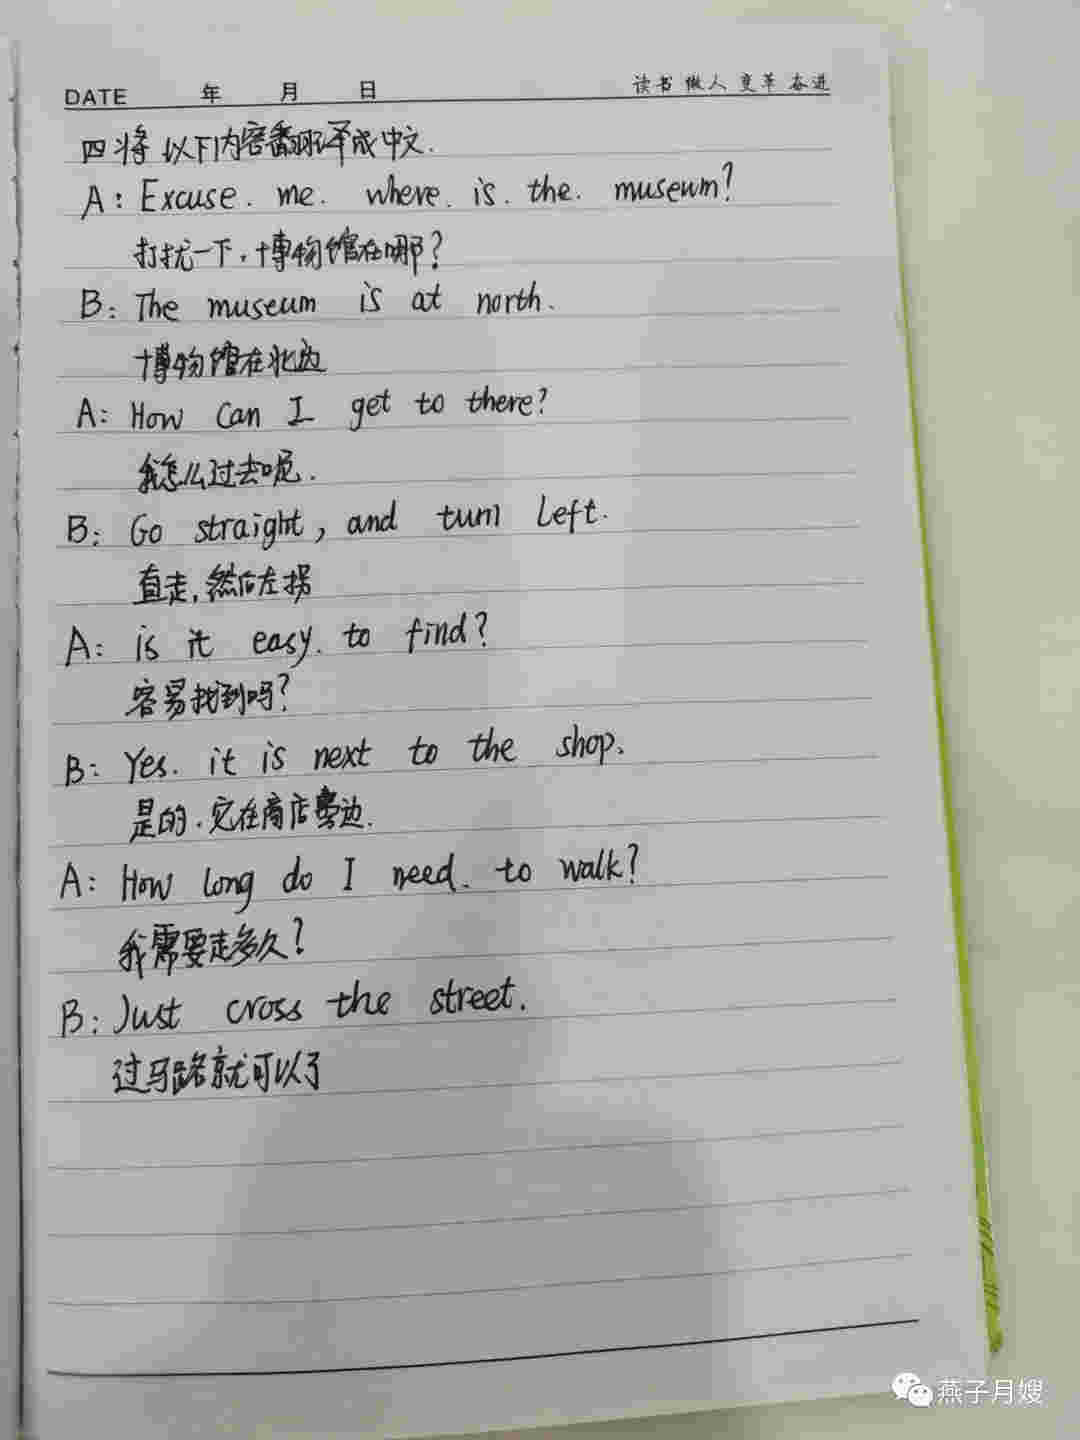 DATE 年 月 日 读书 做人 变革 奋进
四 将以下内容翻译成中文.
A: Excuse. me. where. is. the. museum?
打扰一下，博物馆在哪？
B: The museum is at north.
博物馆在北边
A: How can I get to there?
我怎么过去呢.
B: Go straight, and turn left.
直走，然后左拐
A: is it easy. to find?
容易找到吗？
B: Yes. it is next to the shop.
是的.它在商店旁边.
A: How long do I need. to walk?
我需要走多久？
B: Just cross the street.
过马路就可以了
燕子月嫂